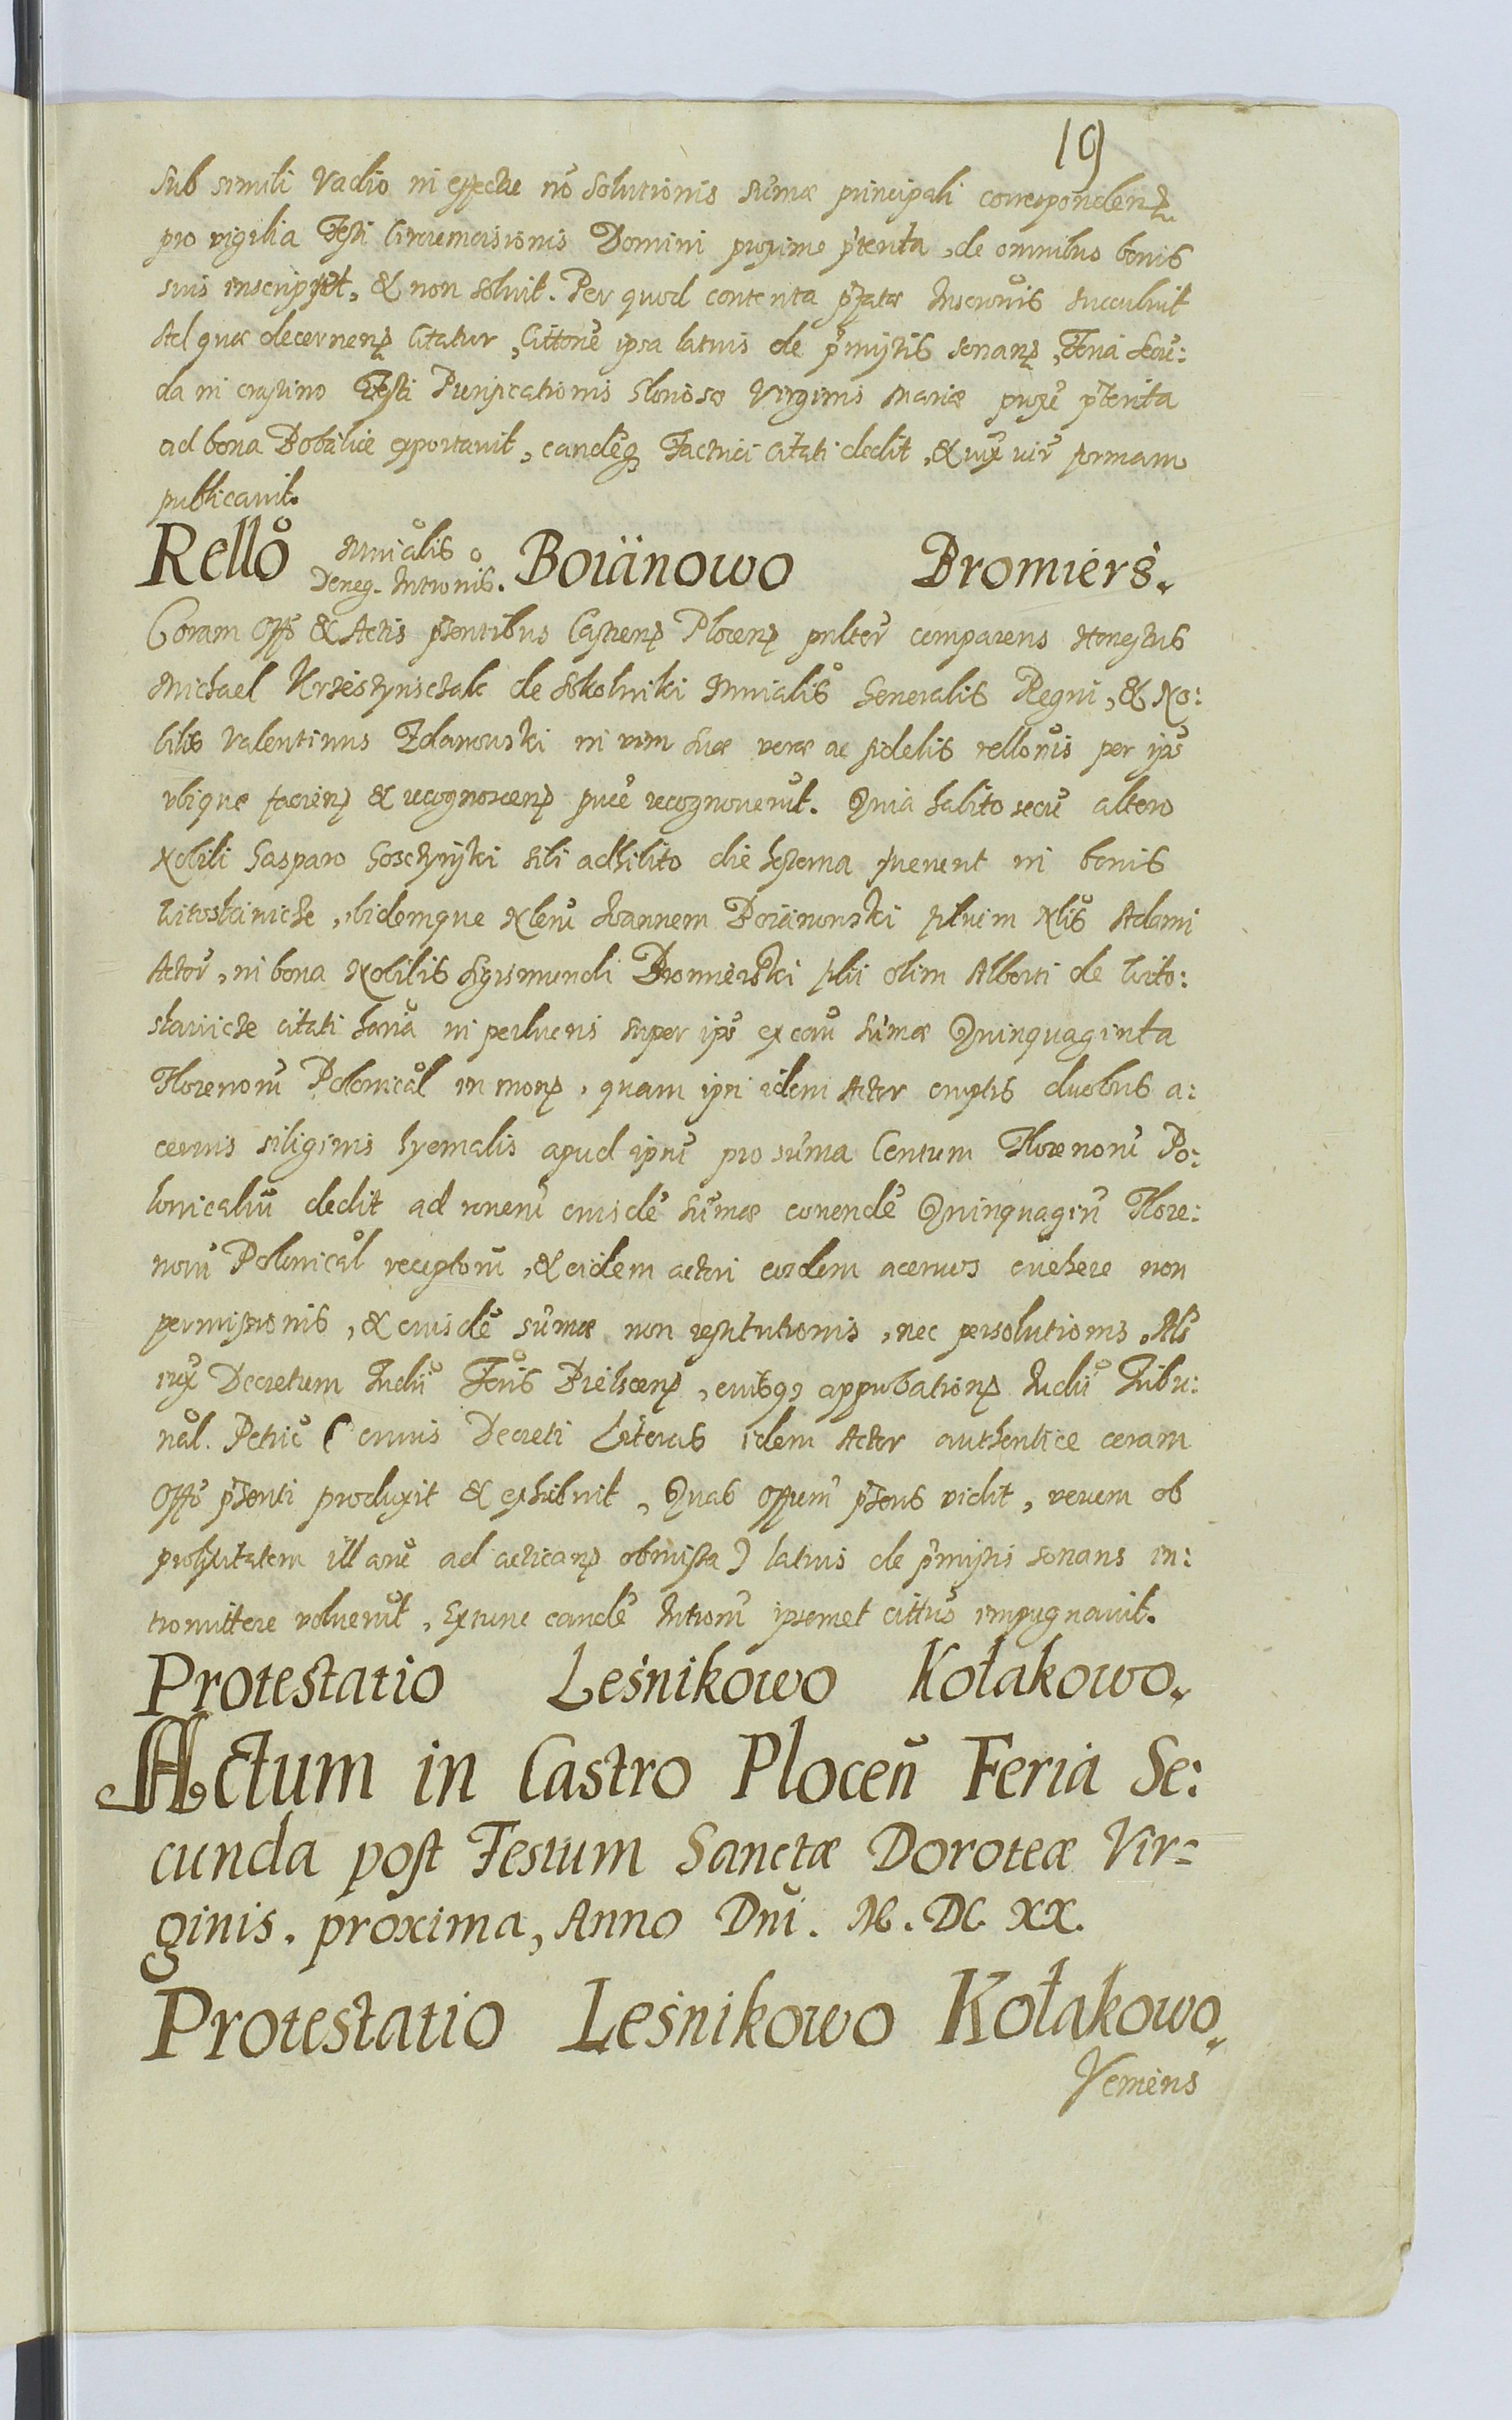 19
sub simili vadio in effectu nō solutionis sūmæ principali corresponden
pro vigilia Festi Circumcisionis Domini proxime pterita, de omnibus bonis
suis inscripsit, & non solvit. Per quod contenta pfatæ Inscrōnis succubuit
Ad quæ decernen citatur, Cittōne ipsa latius de pmissis sonan, Feria Secū:
da in crastino Festi Purificationis Gloriosæ Virginis Mariæ proxe pterita
ad bona Bobalice exportavit, eandēq factrici citati dedit, & iux iur formam
publicavit.
Rellō Mnialis Deneg. Intronis. Boiänowo Bromiers.
Coram Offo & Actis pntibus Castren Plocen prlter comparens Honestus
Michael Krzesczynsczak de Skolniki Mnialis Generalis Regni, & No:
bilis Valentinus Zdanowski in vim suæ veræ ac fidelis rellonis per ips
ubique facien & recognoscen puce recognoverūt. Quia habito secū altero
Nobili Gasparo Gosczynski sibi adhibito die hesterna fuerunt in bonis
Witoslawicze, ibidemque Nlem Ioannem Boiänowski filium Nlis Adami
Actor, in bona Nobilis Sigismundi Bromierski filii olim Alberti de Wito:
slawicze citati haria in perlucris super ips ex caū sūmæ Quinquaginta
Florenorū Polonical in mon, quam ipsi idem Actor emptis duobus a:
cervis siliginis hyemalis apud ipsū pro sūma Centum Florenorū Po:
lonicaliū dedit ad ronem eiusdē sūmæ convendē Quinquagin Flore:
norū Polonical receptorū, & eidem actori eosdem acervos evehere non
permissionis, & eiusdē sūmæ non restitutionis, nec persolutionis, Als
iux Decretum Iudii Fens Bielscen, eiusq approbation Iudii Tribu:
nal. Petric (cuius Decreti Literas idem Actor authentice coram
Offo pnti produxit & exhibuit, Quas Offum pns vidit, verum ob
prolixitatem illarū ad actican obmissa) latius de pmissis sonans in:
tromittere voluerūt, Extunc eandē Introm ipsemet cittus impugnavit.
Protestatio Leśnikowo Kołakowo.
Actum in Castro Ploceñ Feria Se:
cunda post Festum Sanctæ Doroteæ Vir=
ginis. proxima, Anno Dni. M. DC. XX.
Protestatio Leśnikowo Kołakowo.
Veniens